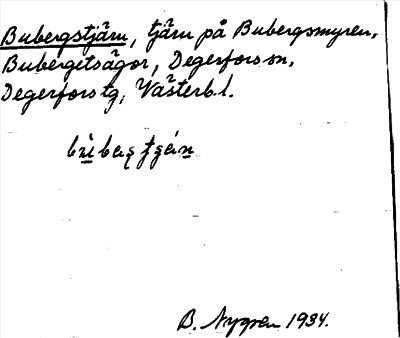 Bubergstjärn, tjärn på Bubergsmyren,
Bubergets ägor, Degerfors sn,
Degerfors tg, Västerb. l.
B. Nygren 1934.